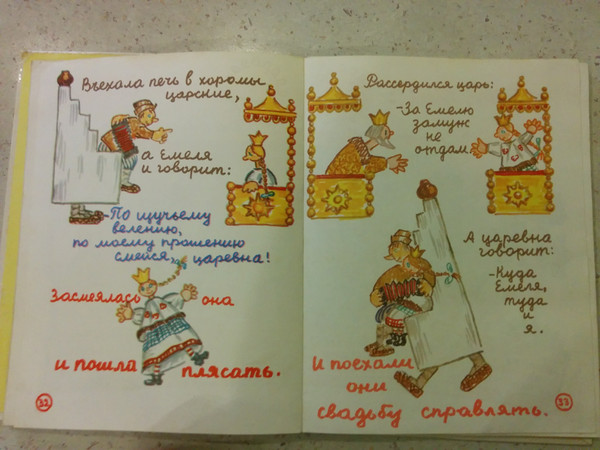 Въехала печь в хоромы
царские,
а Емеля
и говорит:
-По щучьему
велению,
по моему прошению
смейся, царевна!
Засмеялась она
и пошла плясать.
32
Рассердился царь:
-За Емелю
замуж
не
отдам.
А царевна
говорит:
-Куда
Емеля,
туда
и
я.
И поехали
они
свадьбу справлять.
33